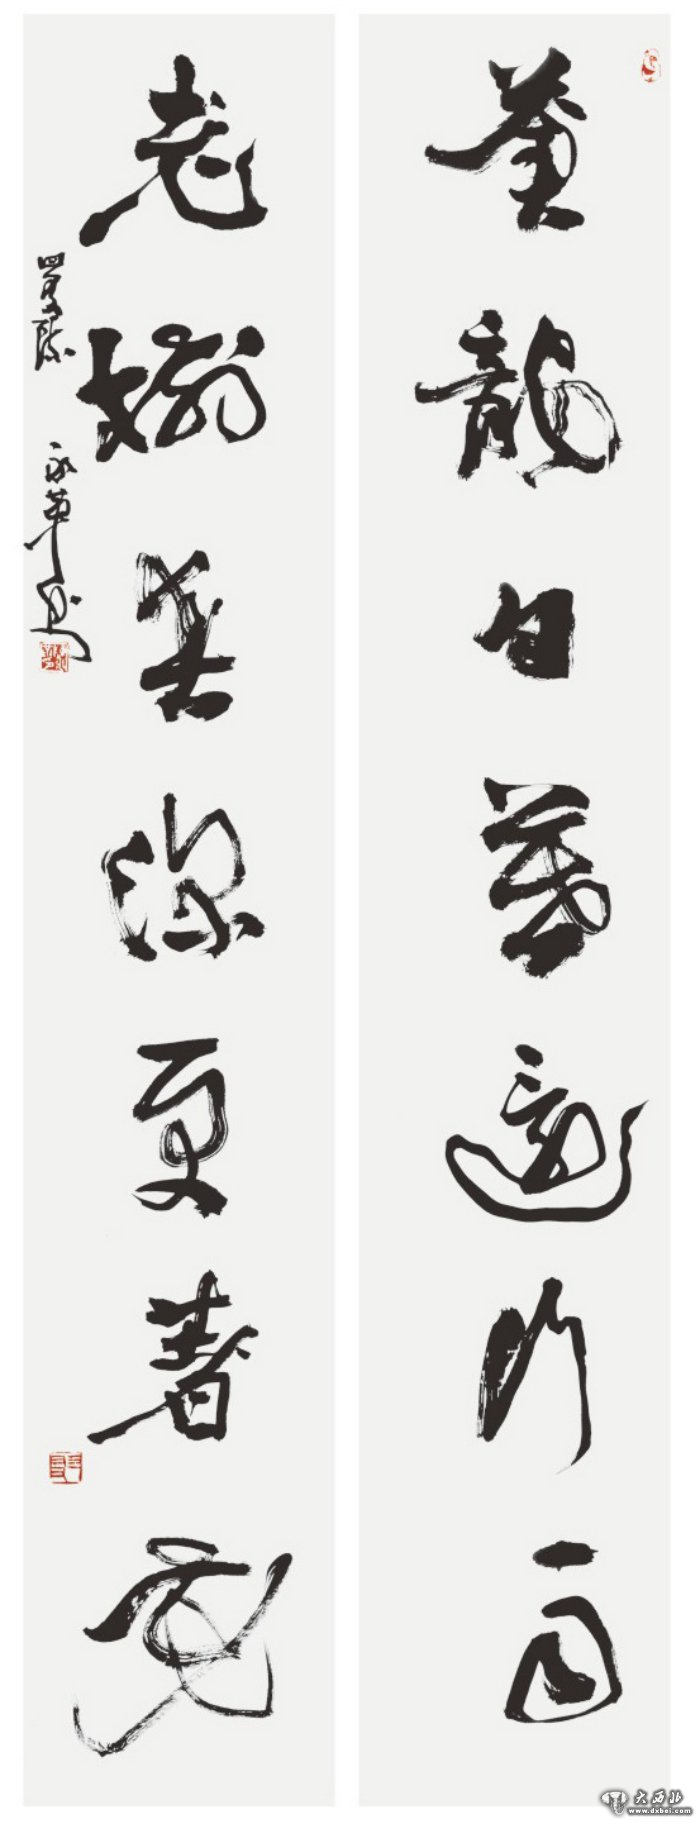 蒼龍日暮還行雨
老樹春深更著花
大西北
www.dxbei.com